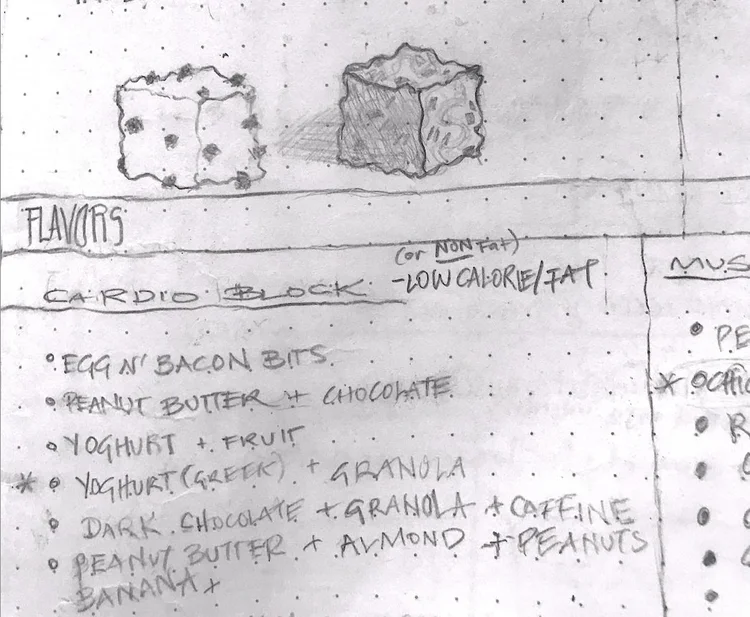 FLAVORS
(or NON Fat)
CARDIO BLOCK -LOW CALORIE/FAT
MUS
• EGG N' BACON BITS
• PEANUT BUTTER + CHOCOLATE
• YOGHURT + FRUIT
* • YOGHURT (GREEK) + GRANOLA
• DARK CHOCOLATE + GRANOLA + CAFFINE
• PEANUT BUTTER + ALMOND + PEANUTS
BANANA +
• PE
* •
• R